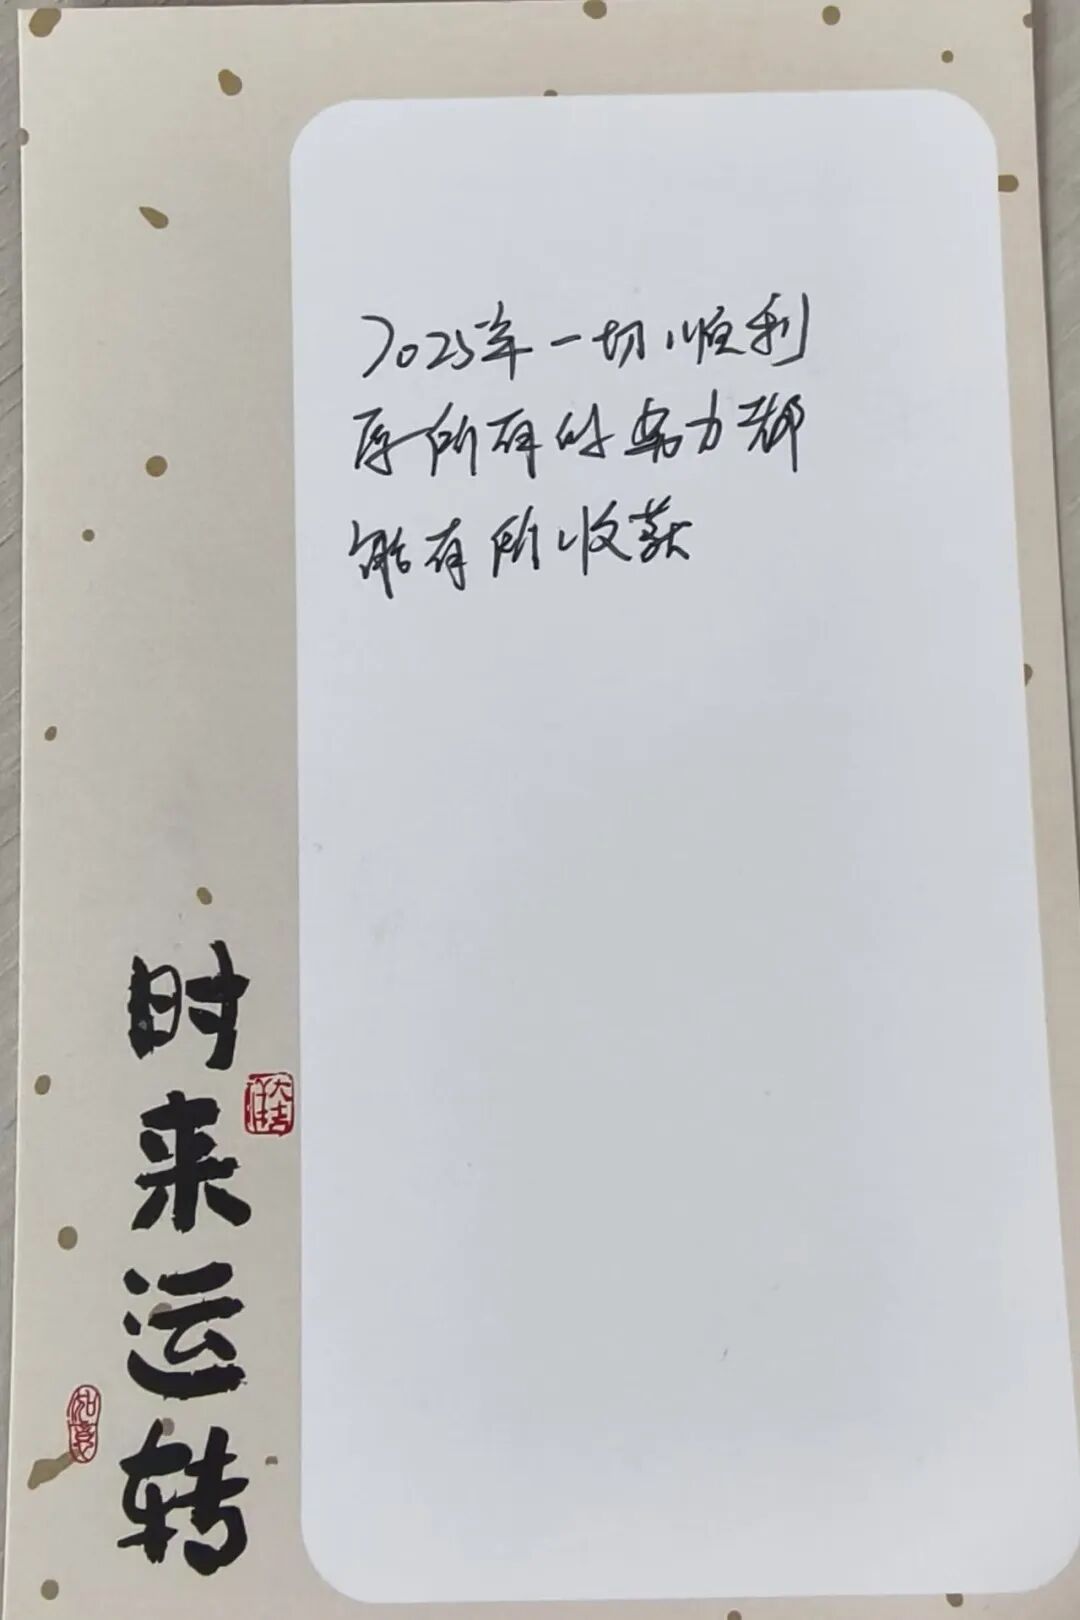 2025年一切顺利
愿所有的努力都
能有所收获
时来运转
大吉
如意